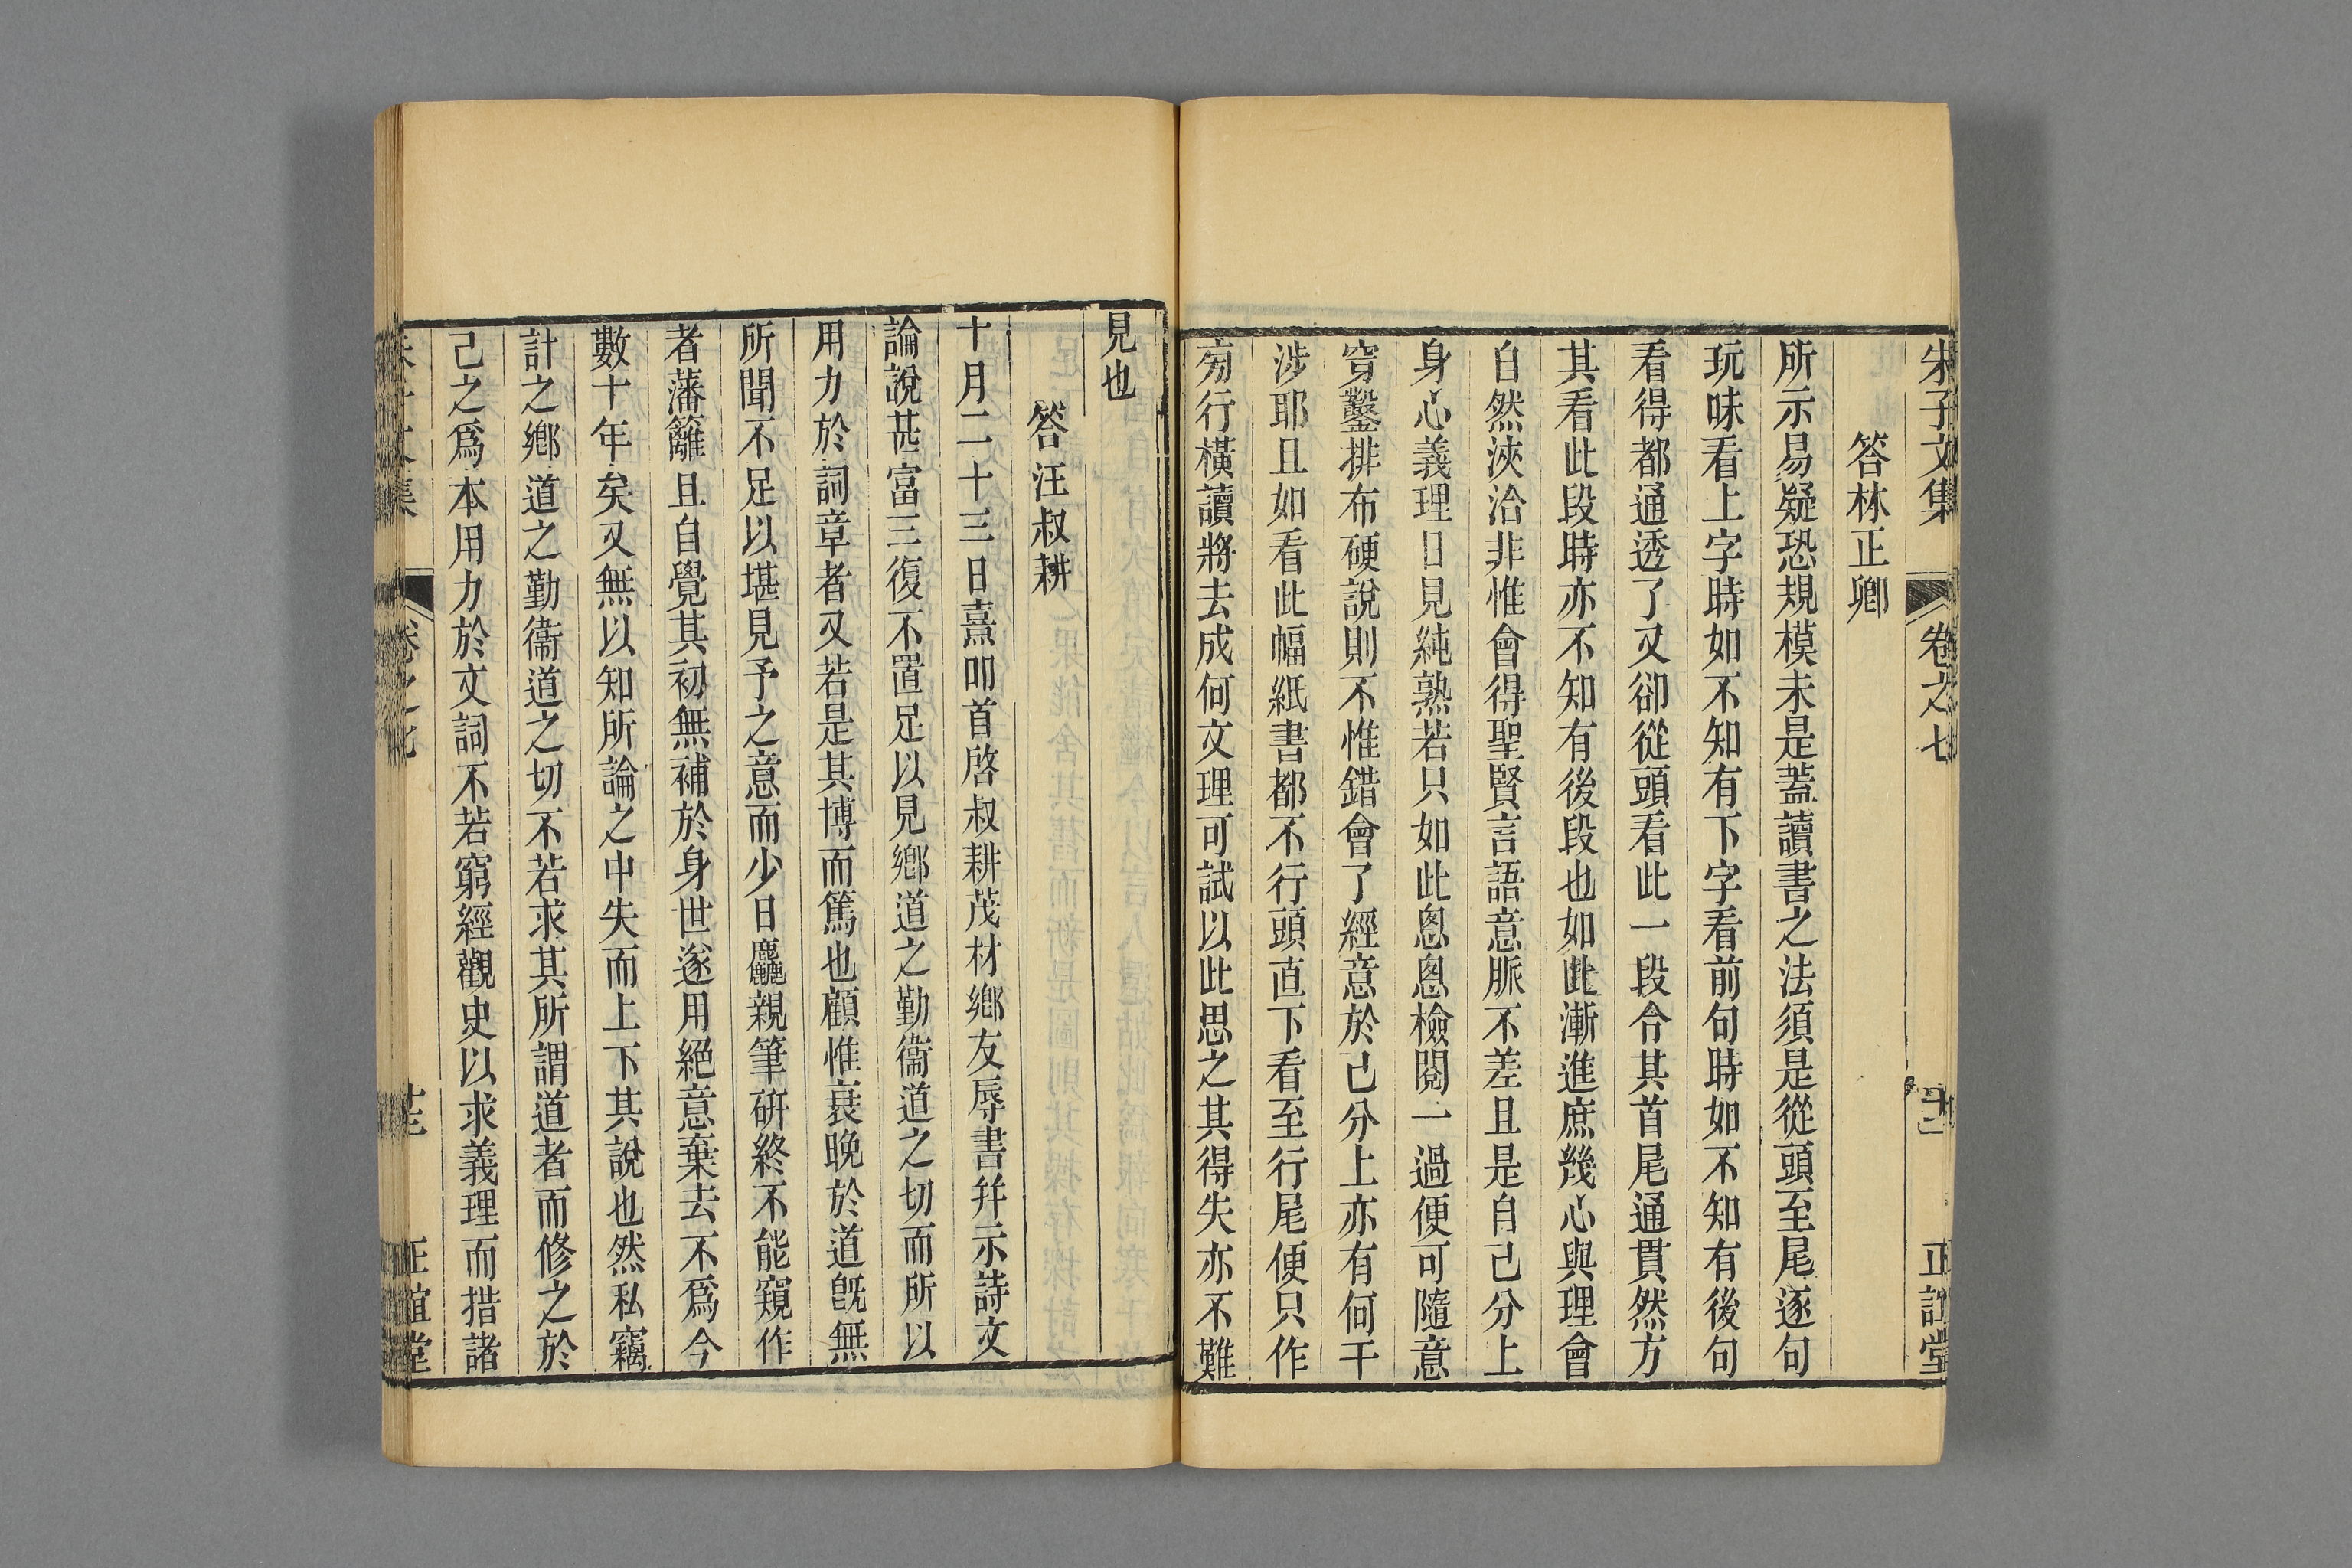 朱子文集　卷之七　十二　正誼堂
答林正卿
所示易疑恐規模未是蓋讀書之法須是從頭至尾逐句
玩味看上字時如不知有下字看前句時如不知有後句
看得都通透了又卻從頭看此一段令其首尾通貫然方
其看此段時亦不知有後段也如此漸進庶幾心與理會
自然浹洽非惟會得聖賢言語意脈不差且是自己分上
身心義理日見純熟若只如此悤悤檢閱一過便可隨意
穿鑿排布硬說則不惟錯會了經意於己分上亦有何干
涉耶且如看此幅紙書都不行頭直下看至行尾便只作
旁行橫讀將去成何文理可試以此思之其得失亦不難
見也
答汪叔耕
十月二十三日熹叩首啓叔耕茂材鄉友辱書幷示詩文
論說甚富三復不置足以見鄉道之勤衞道之切而所以
用力於詞章者又若是其博而篤也顧惟衰晚於道旣無
所聞不足以堪見予之意而少日麤親筆硏終不能窺作
者藩籬且自覺其初無補於身世遂用絕意棄去不爲今
數十年矣又無以知所論之中失而上下其說也然私竊
計之鄉道之勤衞道之切不若求其所謂道者而修之於
己之爲本用力於文詞不若窮經觀史以求義理而措諸
朱子文集　卷之七　十三　正誼堂